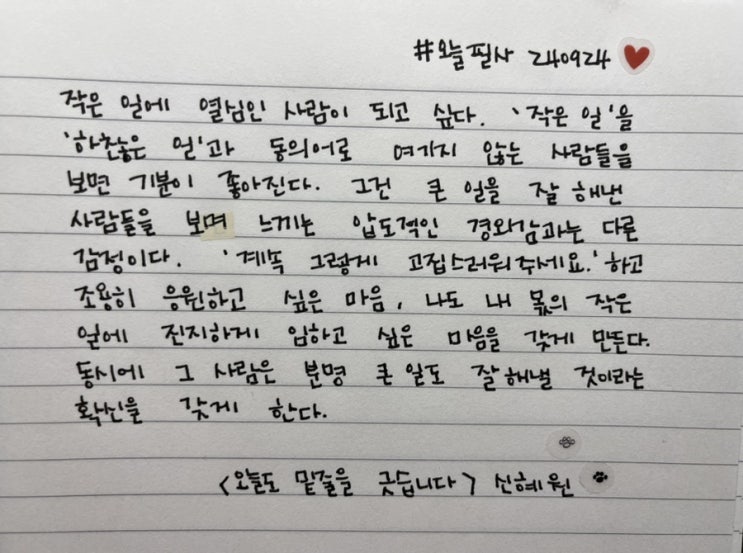 #오늘필사 240924
작은 일에 열심인 사람이 되고 싶다. '작은 일'을
'하찮은 일'과 동의어로 여기지 않는 사람들을
보면 기분이 좋아진다. 그건 큰 일을 잘 해낸
사람들을 보며 느끼는 압도적인 경외감과는 다른
감정이다. '계속 그렇게 고집스러워주세요.' 하고
조용히 응원하고 싶은 마음, 나도 내 몫의 작은
일에 진지하게 임하고 싶은 마음을 갖게 만든다.
동시에 그 사람은 분명 큰 일도 잘 해낼 것이라는
확신을 갖게 한다.
<오늘도 밑줄을 긋습니다> 신혜원